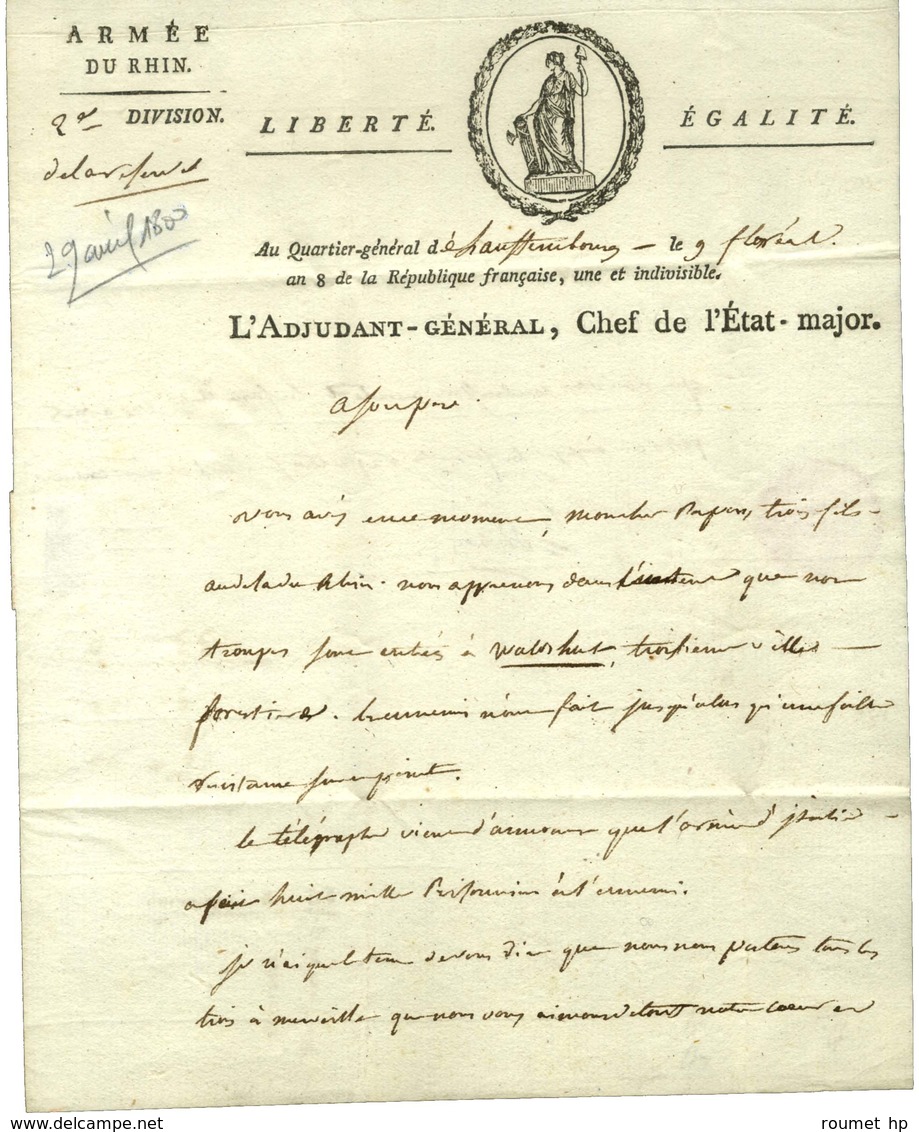 ARMÉE
DU RHIN.
2de DIVISION.
de la reserve
29 avril 1800
LIBERTÉ.
ÉGALITÉ.
Au Quartier-général d' le 9 floréal.
an 8 de la République française, une et indivisible.
L'ADJUDANT-GÉNÉRAL, Chef de l'État-major.
a son pere.
vous avés en ce moment, mon cher Papa, trois fils
audela du Rhin. nous apprenons dans que nos
troupes sont entrées à Waldshut, troisieme ville
forestiere. l'ennemis n'a fait jusqu'alors qu'une faible
resistance sur ce point.
le télégraphe vient d'annoncer que l'armée d'italie
a fait huit mille Prisonniers à l'ennemi.
je n'ai que le tems de vous dire que nous nous portons tous les
trois à merveille que nous vous aimons de tout notre coeur et
roumet hp